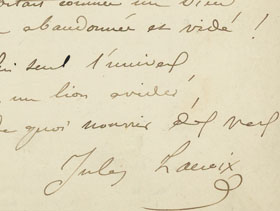 comme un vieux
abandonnée et vidé !
seul l'univers
un lion avide,
de quoi nourrir des vers
Jules Lacroix